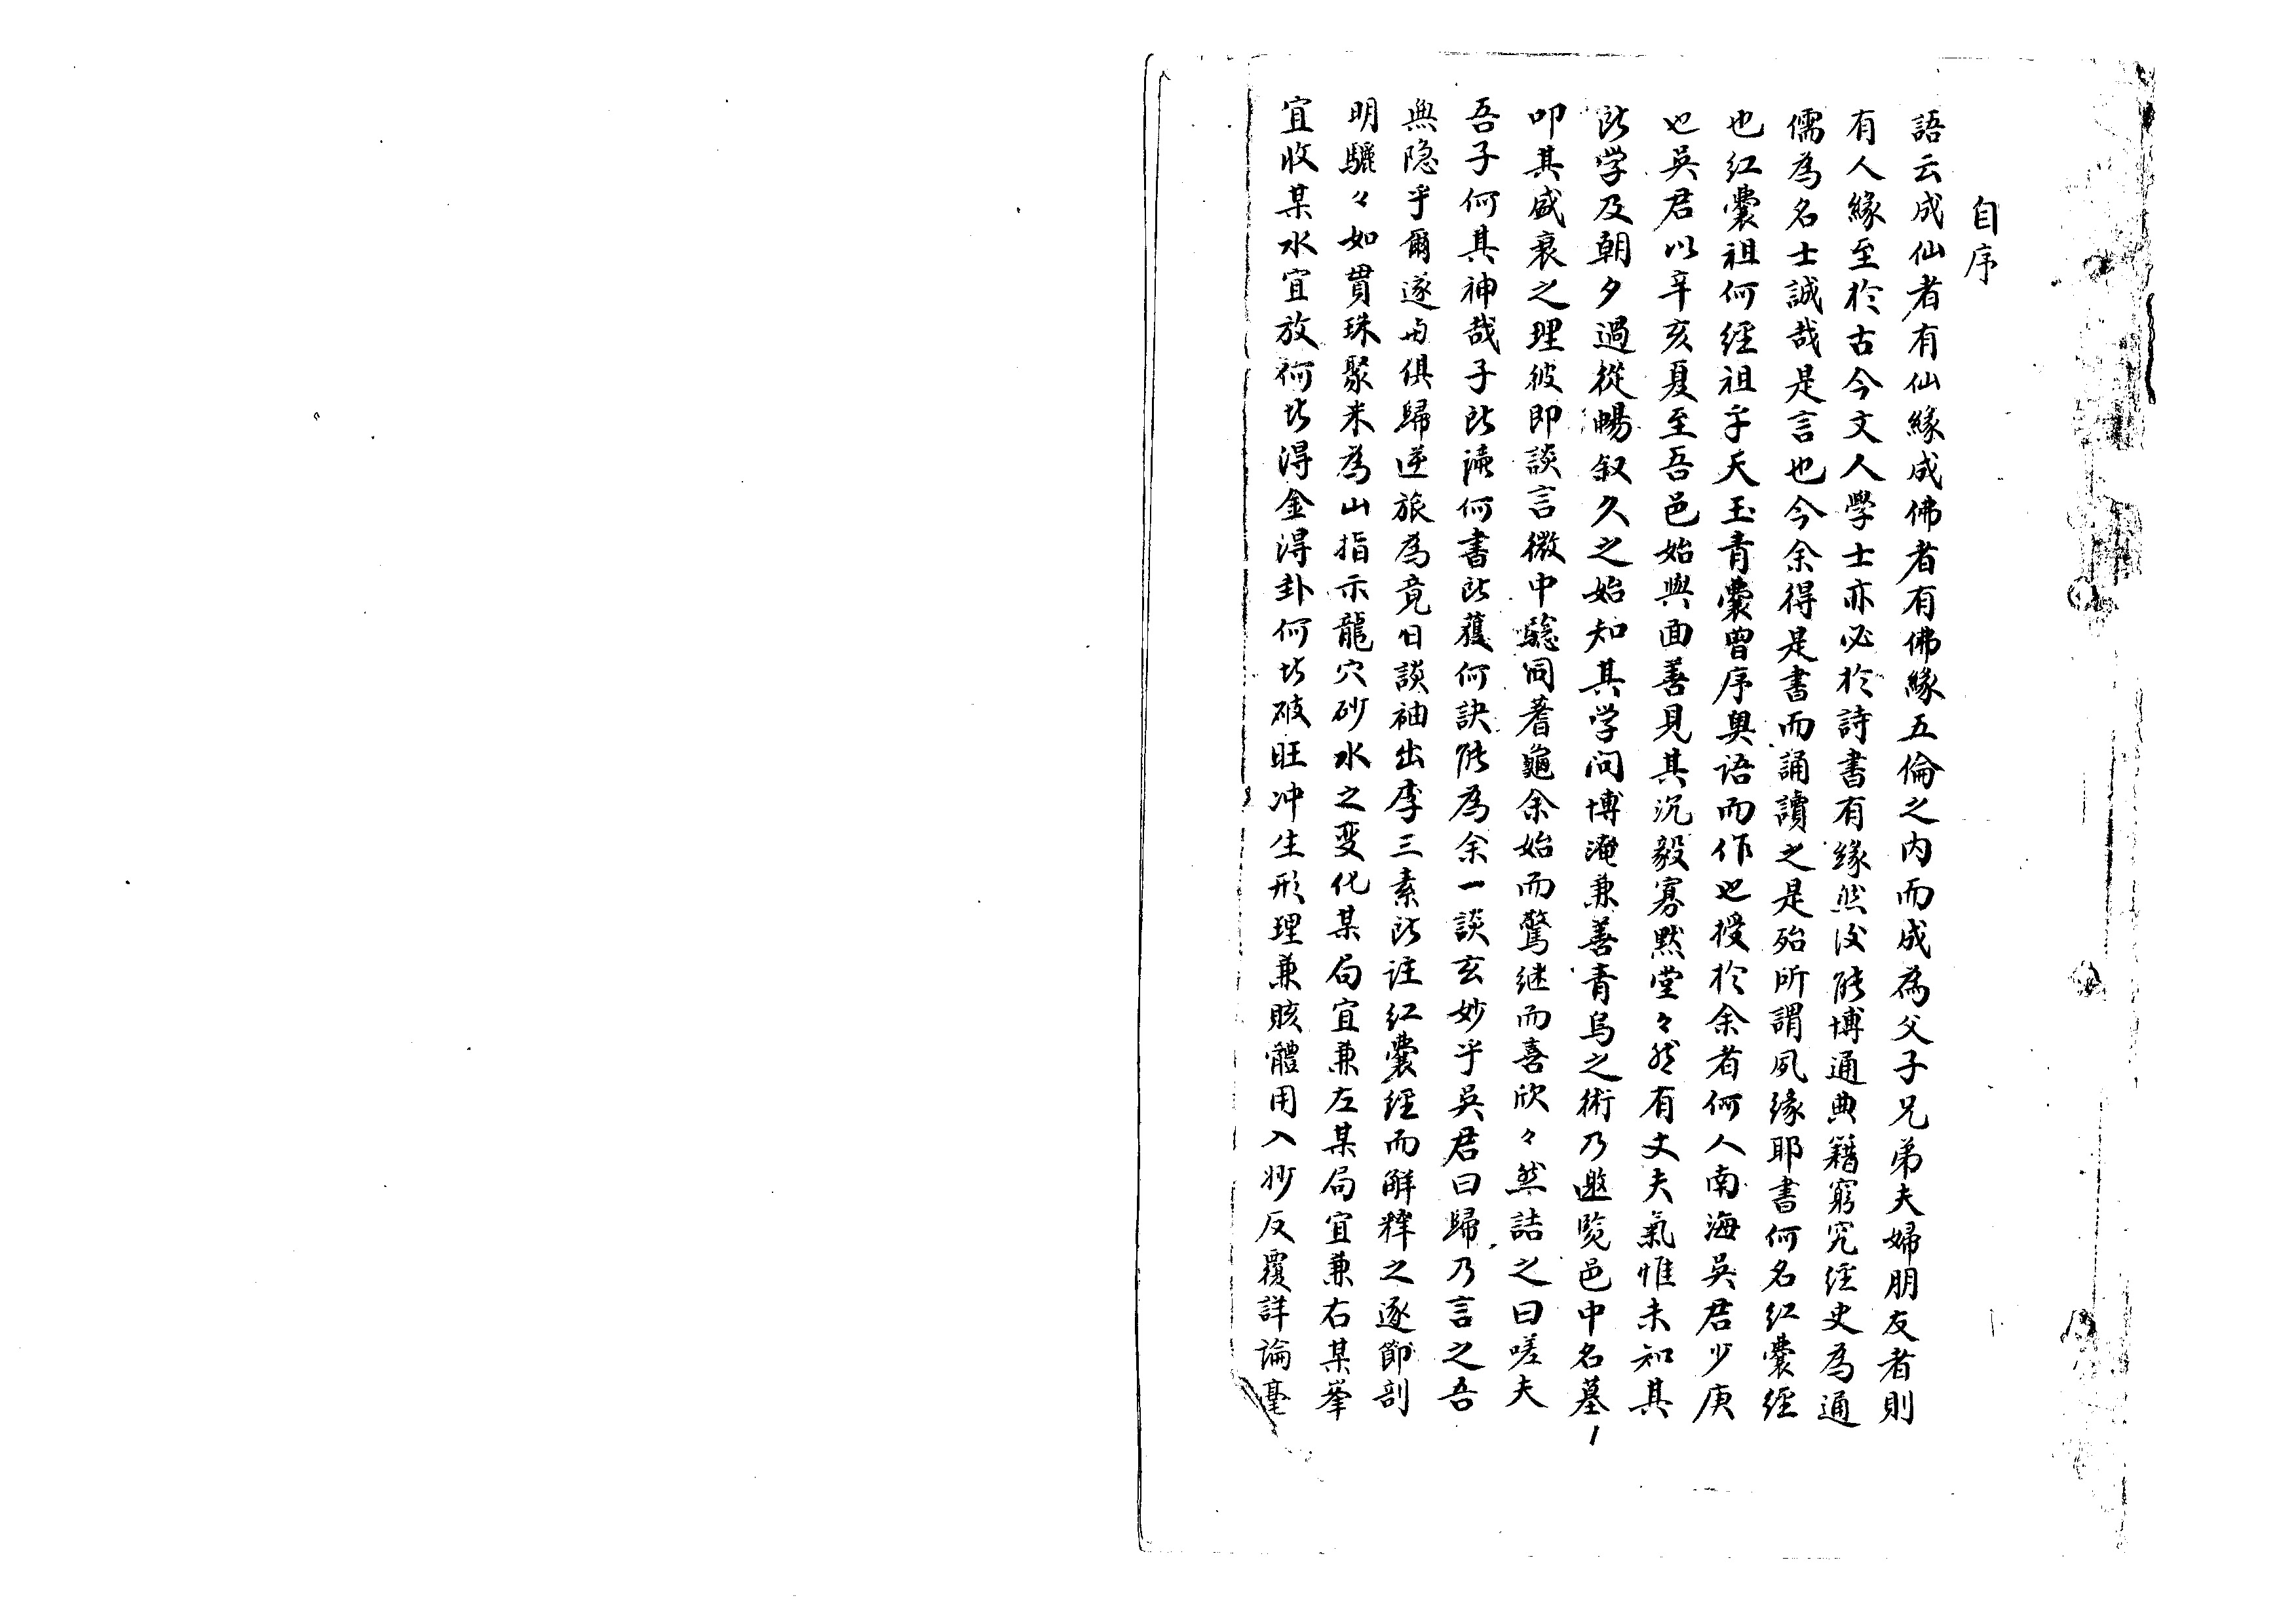 自序
語云成仙者有仙緣成佛者有佛緣五倫之內而成為父子兄弟夫婦朋友者則
有人緣至於古今文人學士亦必於詩書有緣然後能博通典籍窮究經史為通
儒為名士誠哉是言也今余得是書而誦讀之是殆所謂夙緣耶書何名紅囊經
也紅囊祖何經祖乎天玉青囊曾序奧语而作也授於余者何人南海吳君少庚
也吳君以辛亥夏至吾邑始與面善見其沉毅寡默堂々然有丈夫氣惟未知其
所学及朝夕過從暢叙久之始知其学问博淹兼善青烏之術乃邀覽邑中名墓
叩其盛衰之理彼即談言微中驗同蓍龜余始而驚継而喜欣々然詰之曰嗟夫
吾子何其神哉子所讀何書所獲何訣能為余一談玄妙乎吳君曰歸乃言之吾
無隐乎爾遂与俱歸逆旅為竟日談袖出李三素所註紅囊經而解釋之逐節剖
明驪々如貫珠聚米為山指示龍穴砂水之变化某局宜兼左某局宜兼右某峯
宜收某水宜放何以得金得卦何以破旺冲生形理兼賅體用入妙反覆詳論毫